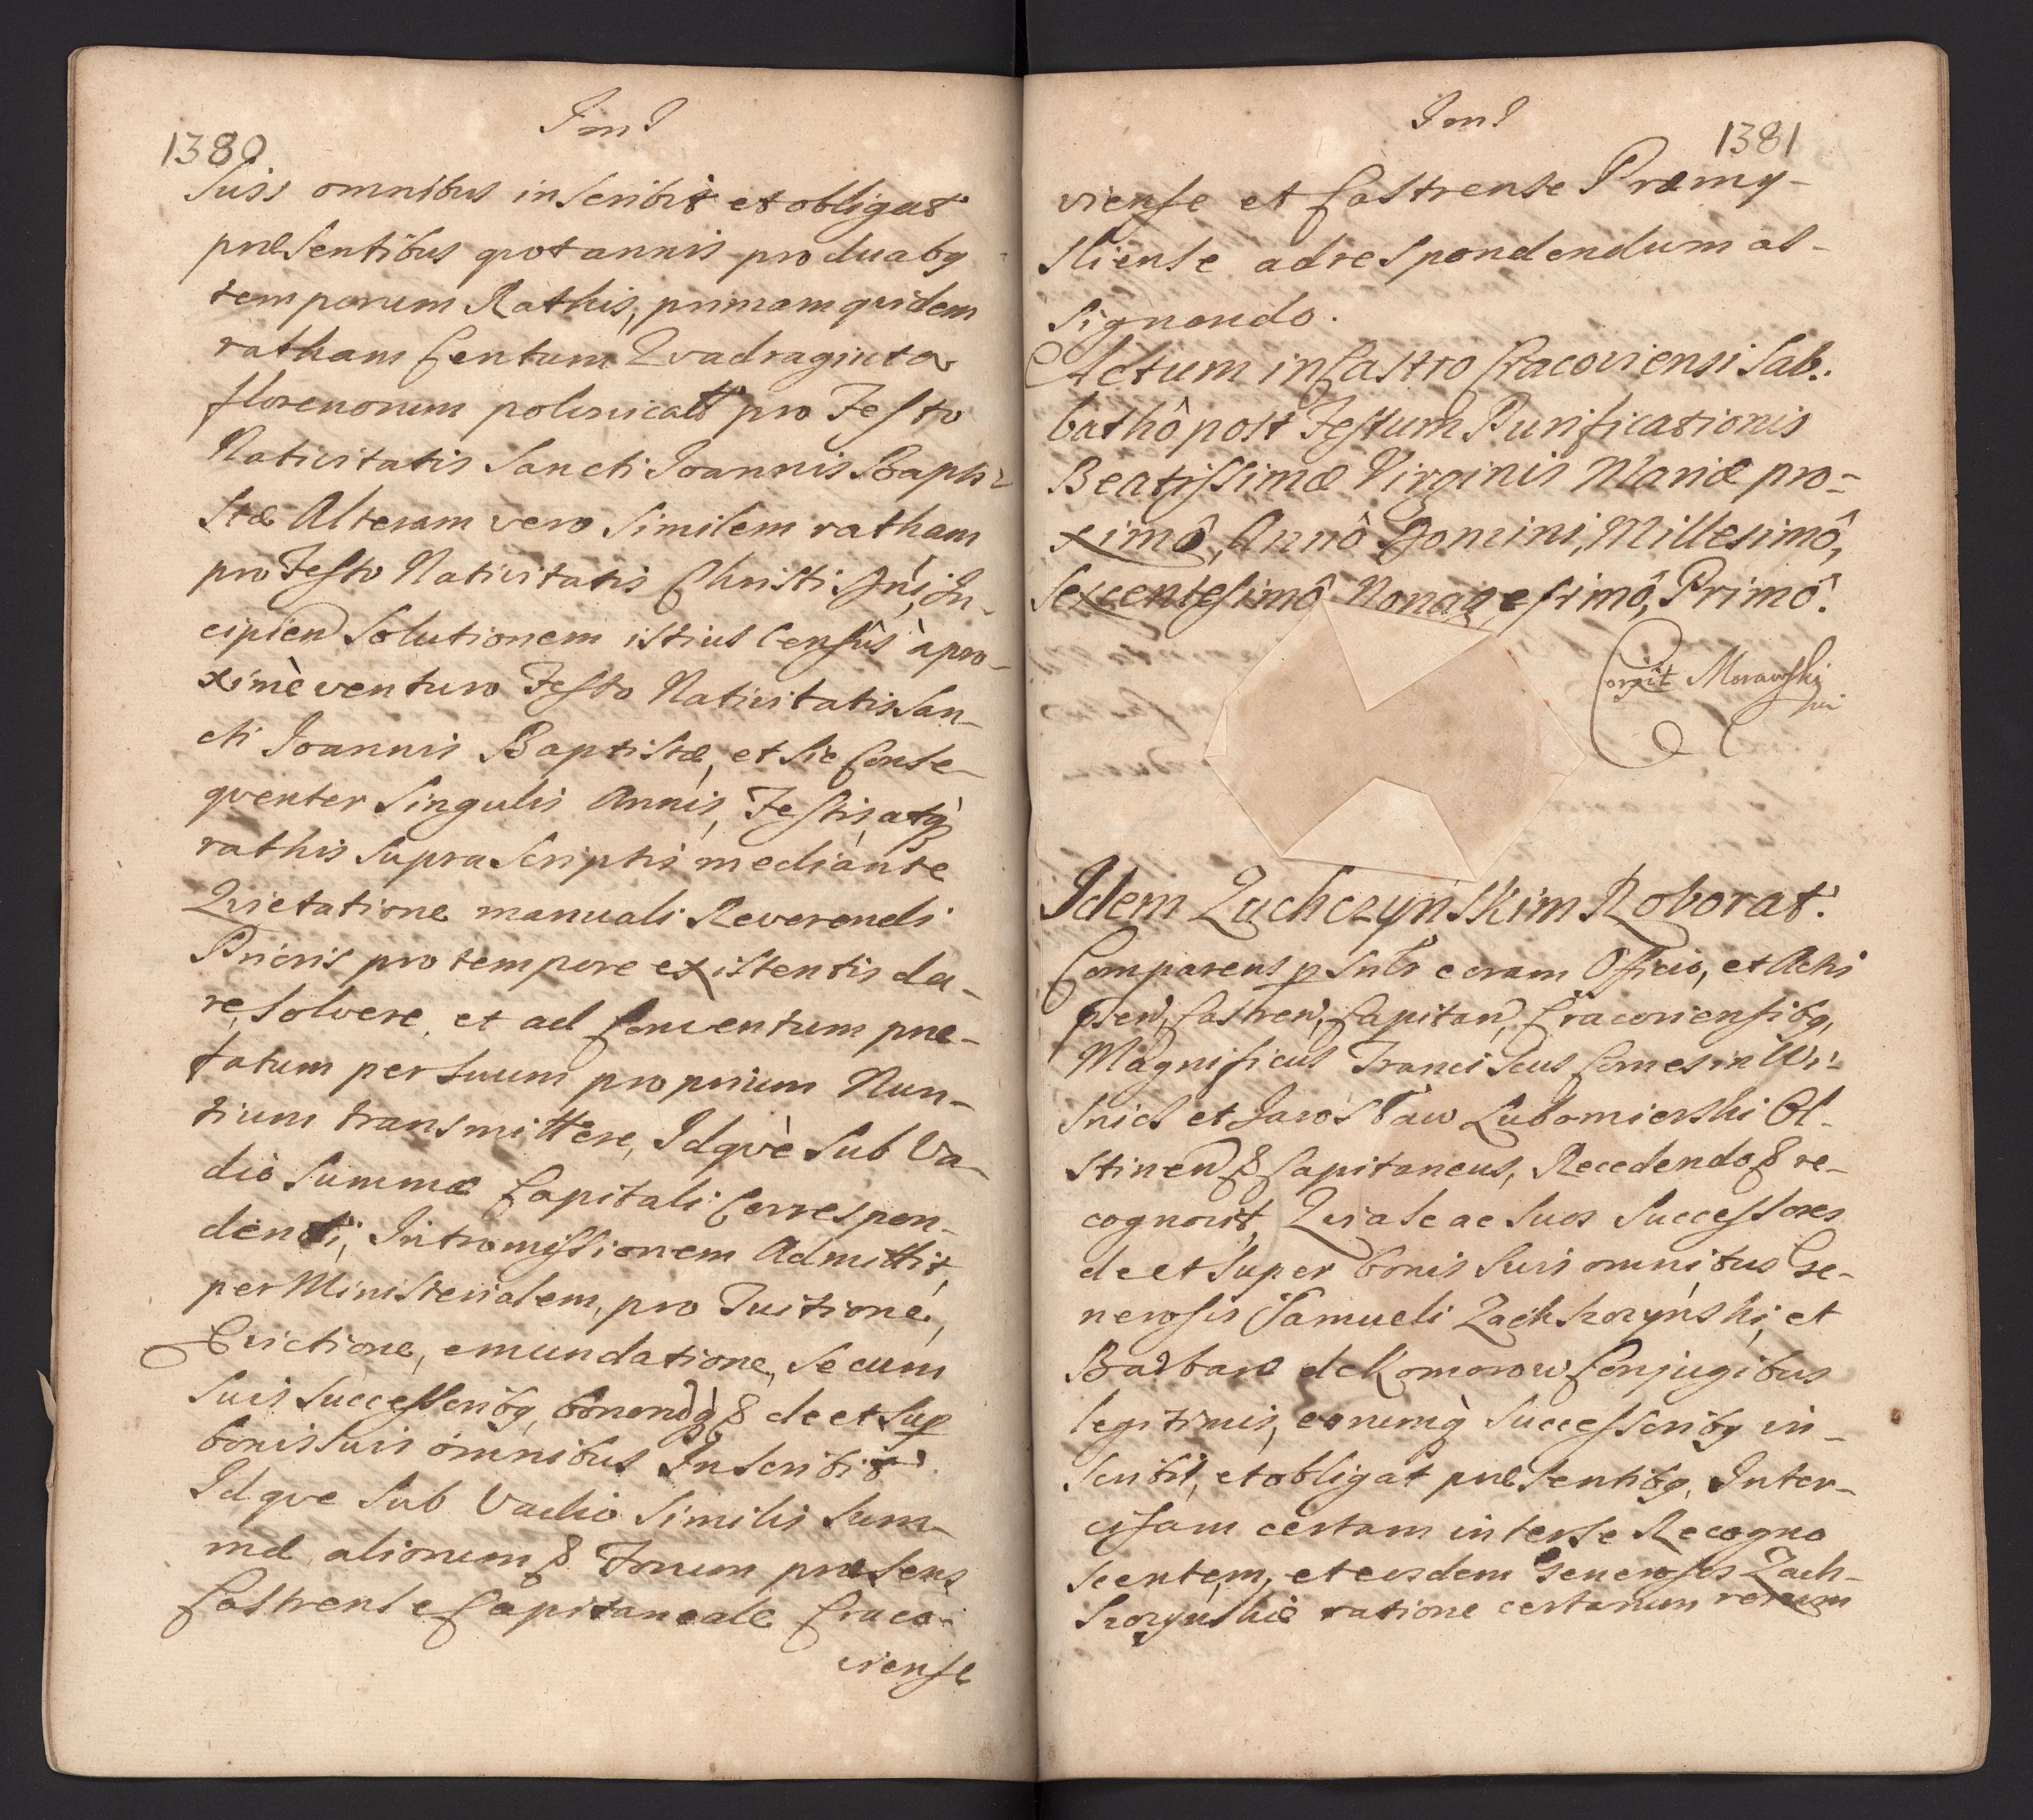 Im̃
1380
suis omnibus inscribit et obligat
præsentibus quotannis pro duabq
temporum Rathis, primam quidem
ratham Centum Quadraginta
florenorum polonicalt pro Festo
Nativitatis Sancti Joannis Bapti-
stæ Alteram vero similem ratham
pro Festo Nativitatis Christi Dni, In-
cipien solutionem istius Censûs à pro-
ximè venturo Festo Nativitatis San-
cti Joannis Baptistæ, et sic Conse-
quenter singulis Annis, Festis, atq
rathis suprascriptis mediante
Quietatione manuali Reverendi
Prioris pro tempore existentis da-
re, solvere, et ad Conventum præ-
fatum per suum proprium Nun-
tium transmittere, Idquè sub Va-
diô summæ Capitali Correspon-
denti, Intromissionem Admittit,
per Ministerialem, pro Tuitione,
Evictione, emundatione, se cum
suis successoribq, bonorq & de et sup
bonis suis omnibus Inscribit
Idque sub Vadio similis sum-
mæ aliorum & Forum præsens
Castrense Capitaneale Craco-
viense
Im̃
1381
viense et Castrense Præmy-
sliense ad respondendum as-
signando.
Actum in Castro Cracoviensi Sab-
bathô post Festum Purificationis
Beatissimæ Virginis Mariæ pro-
ximô, Annô Domini, Millesimô,
Sexcentesimô Nonagesimô, Primô.
Corrit Morawski
Idem Zuchczynskim Roborat.
Comparens psnlr coram Officio, et Actis
psen, Castren, Capitan, Cracoviensibq,
Magnificus Franciscus Comes in Wi-
snicz et Jarosław Lubomierski Ol-
stinen & Capitaneus, Recedendo & re-
cognovit, Quia se ac suos successores
de et super bonis suis omnibus Ge-
nerosis Samueli Zachkorzynski, et
Barbaræ de Komorow Conjugibus
legitimis, eorumq successoribq in-
scribit, et obligat præsentibq, Inter-
cisam certam inter se Recogno
scentem, et eosdem Generosos Zach-
korzynskie ratione certarum rerum